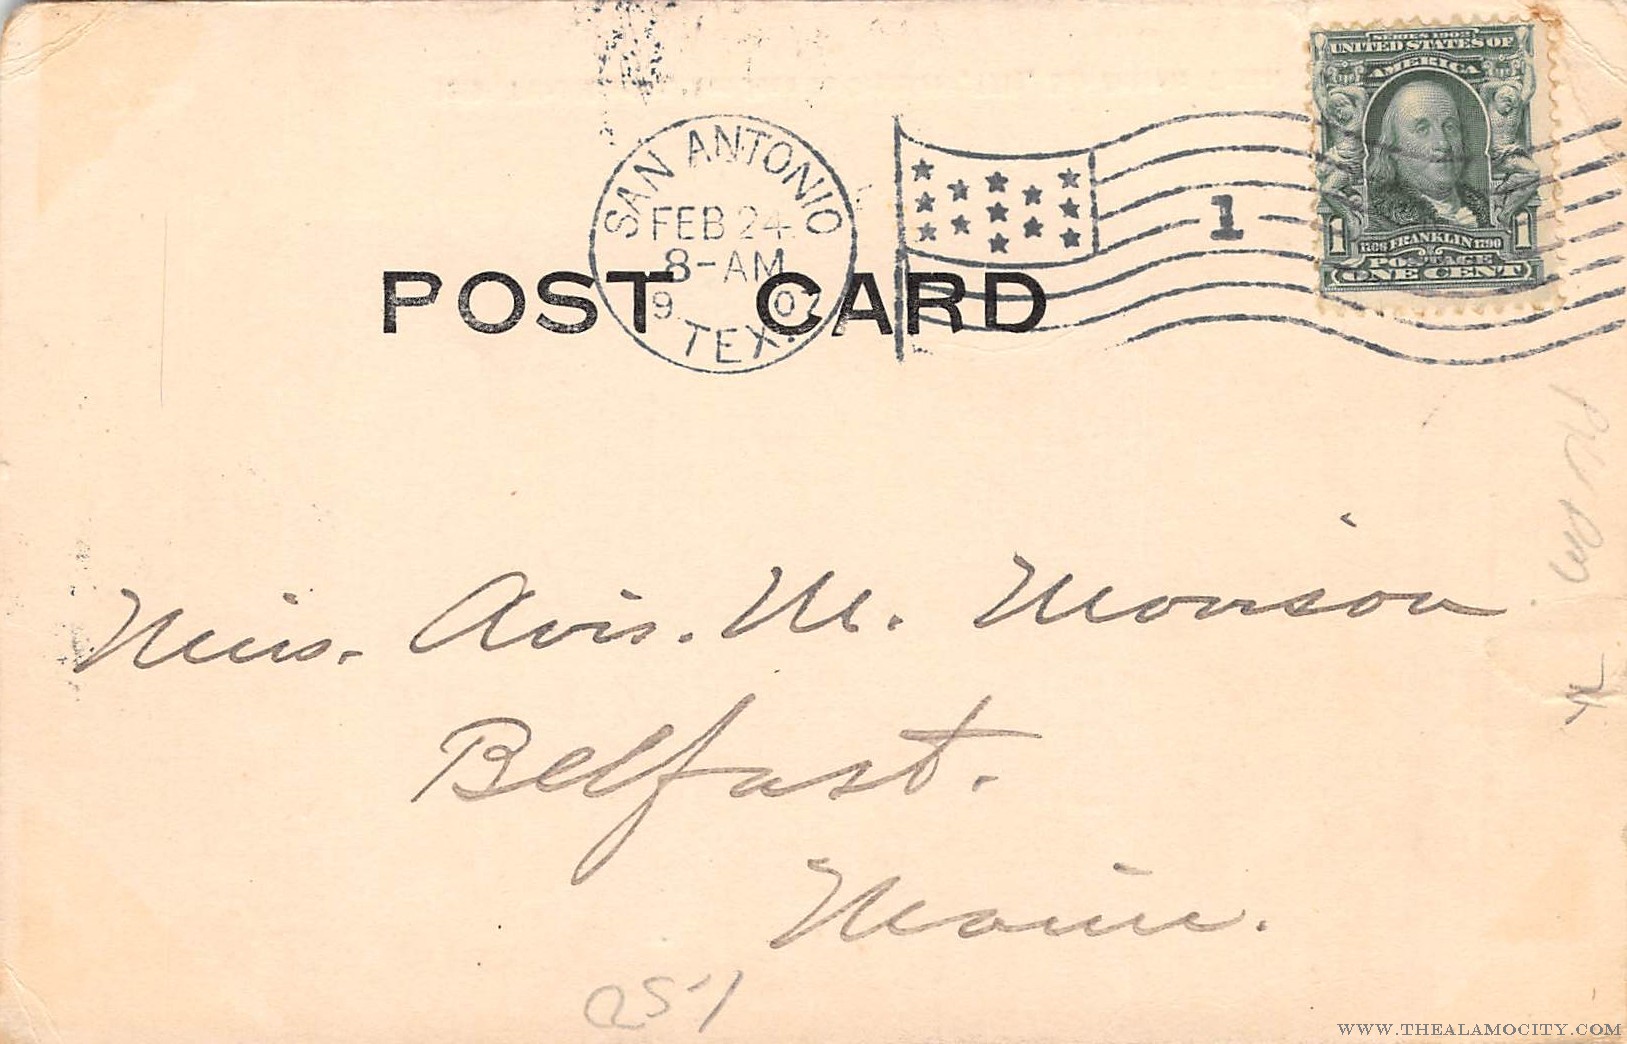 SERIES 1902
UNITED STATES OF
AMERICA
1706 FRANKLIN 1790
1 POSTAGE 1
ONE CENT
SAN ANTONIO
FEB 24
8-AM
1907
TEX.
1
POST CARD
Miss. Avis. M. Morison
Belfast.
Maine.
WWW.THEALAMOCITY.COM